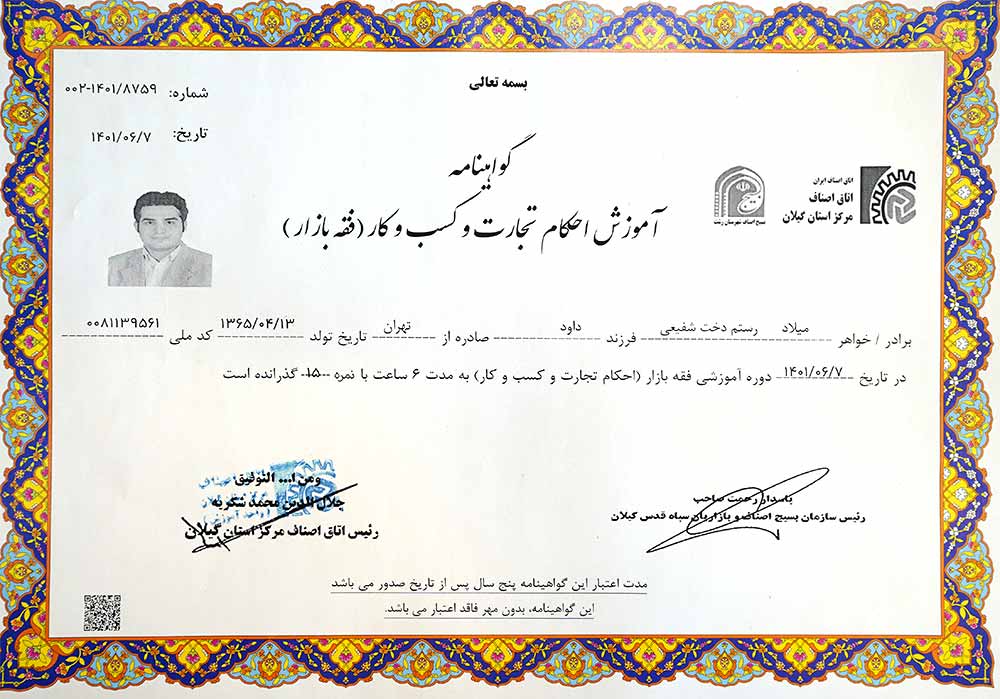 بسمه تعالی
شماره: ۰۰۲-۱۴۰۱/۸۷۵۹
تاریخ: ۱۴۰۱/۰۶/۷
اتاق اصناف ایران
اتاق اصناف
مرکز استان گیلان
بسیج اصناف شهرستان رشت
گواهینامه
آموزش احکام تجارت و کسب و کار (فقه بازار)
برادر / خواهر میلاد رستم دخت شفیعی فرزند داود صادره از تهران تاریخ تولد ۱۳۶۵/۰۴/۱۳ کد ملی ۰۰۸۱۱۳۹۵۶۱
در تاریخ ۱۴۰۱/۰۶/۷ دوره آموزشی فقه بازار (احکام تجارت و کسب و کار) به مدت ۶ ساعت با نمره ۱۵ گذرانده است
پاسدار رحمت صاحب
رئیس سازمان بسیج اصناف و بازاریان سپاه قدس گیلان
ومن ا... التوفیق
جلال الدین محمد شکریه
رئیس اتاق اصناف مرکز استان گیلان
مدت اعتبار این گواهینامه پنج سال پس از تاریخ صدور می باشد
این گواهینامه، بدون مهر فاقد اعتبار می باشد.